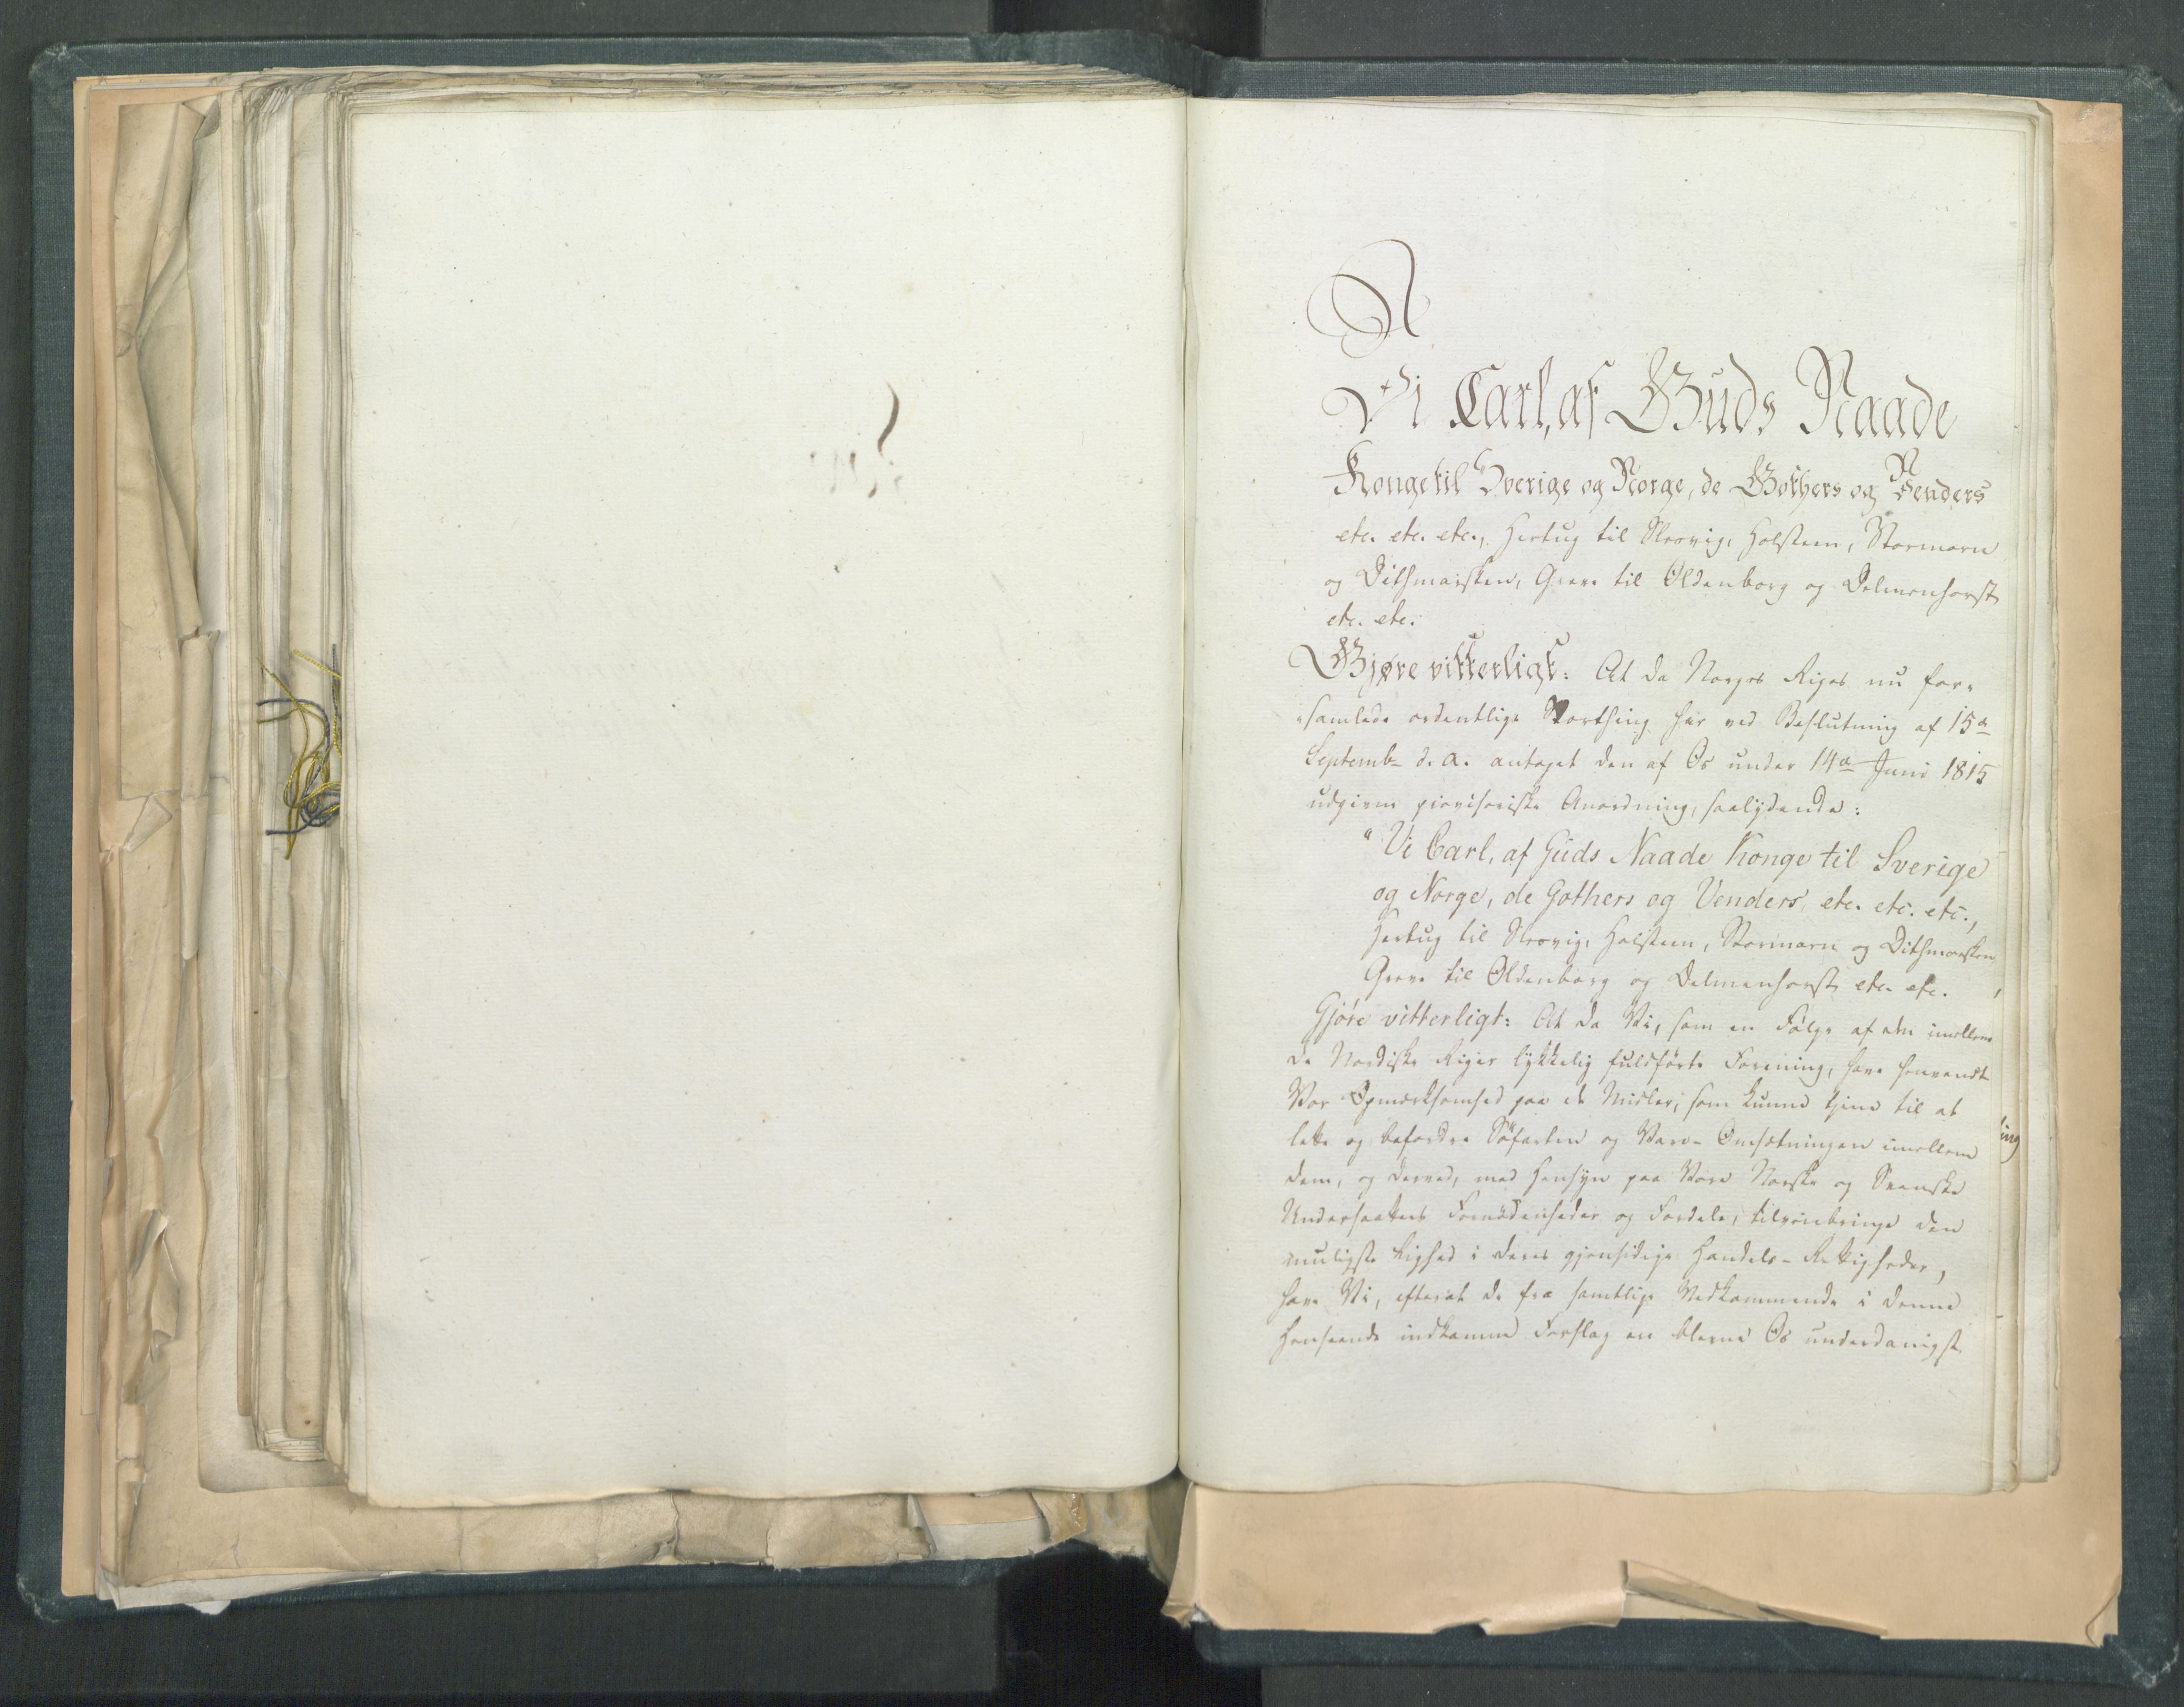 Vi Carl, af Guds Naade
Konge til Sverige og Norge, de Gothers og Venders
etc. etc. etc., Hertug til Slesvig, Holsteen, Stormarn
og Dithmarsken, Greve til Oldenborg og Delmenhorst
etc. etc.
Gjøre vitterligt: At da Norges Riges nu for-
-samlede ordentlige Storthing har ved Beslutning af 15de
Septembr d. A. antaget den af Os under 14de Juni 1815
udgivne provisoriske Anordning, saalydende:
"Vi Carl, af Guds Naade Konge til Sverige
og Norge, de Gothers og Venders, etc. etc. etc.,
Hertug til Slesvig, Holsteen, Stormarn og Dithmarsken,
Greve til Oldenborg og Delmenhorst etc. etc.
Gjöre vitterligt: At da Vi, som en Følge af den imellem
de Nordiske Riger lykkelig fuldførte Forening, have henvendt
Vor Opmærksomhed paa de Midler, som kunne tjene til at
lette og befordre Søfarten og Vare-Omsætningen imellem
dem, og derved, med Hensyn paa Vore Norske og Svenske
Undersaatters Fornødenheder og Fordele, tilveiebringe den
muligste Lighed i deres gjensidige Handels-Rettigheder,
have Vi, efterat de fra samtlige Vedkommende i denne
Henseende indkomne Forslag ere blevne Os underdanigst
ing